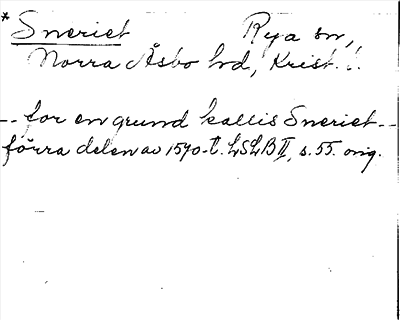 * Sneriet Rya sn,
Norra Åsbo hd, Krist. l.
-- for en grund kallis Sneriet --
förra delen av 1590-t. LSLB II, s. 55. orig.